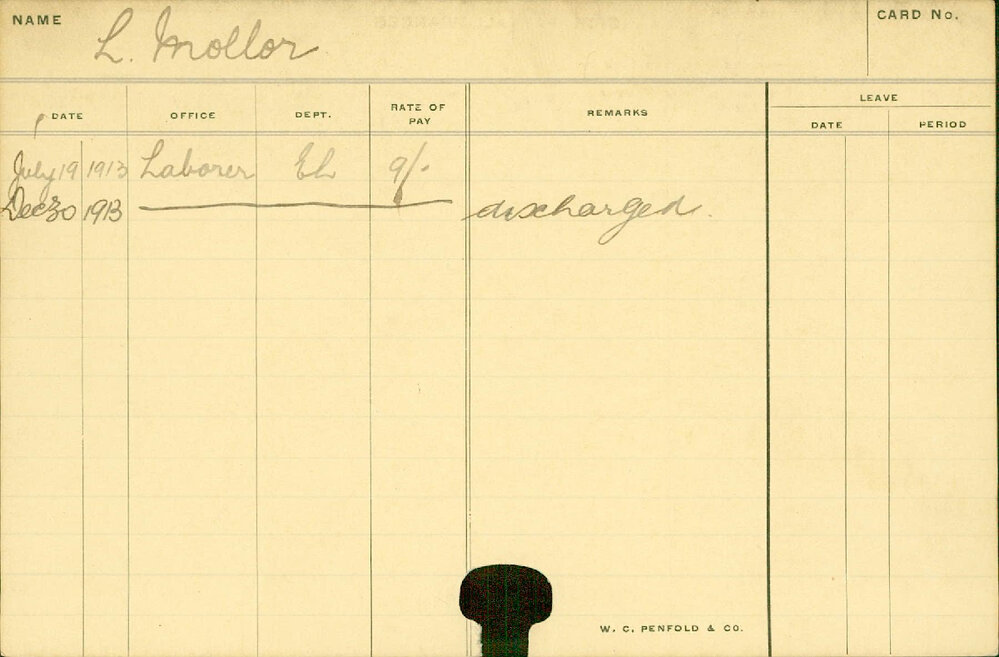 NAME L. Mollor CARD No.
DATE OFFICE DEPT. RATE OF PAY REMARKS LEAVE
DATE PERIOD
July 19 1913 Laborer EL 9/-
Dec 30 1913 discharged.
W. C. PENFOLD & CO.